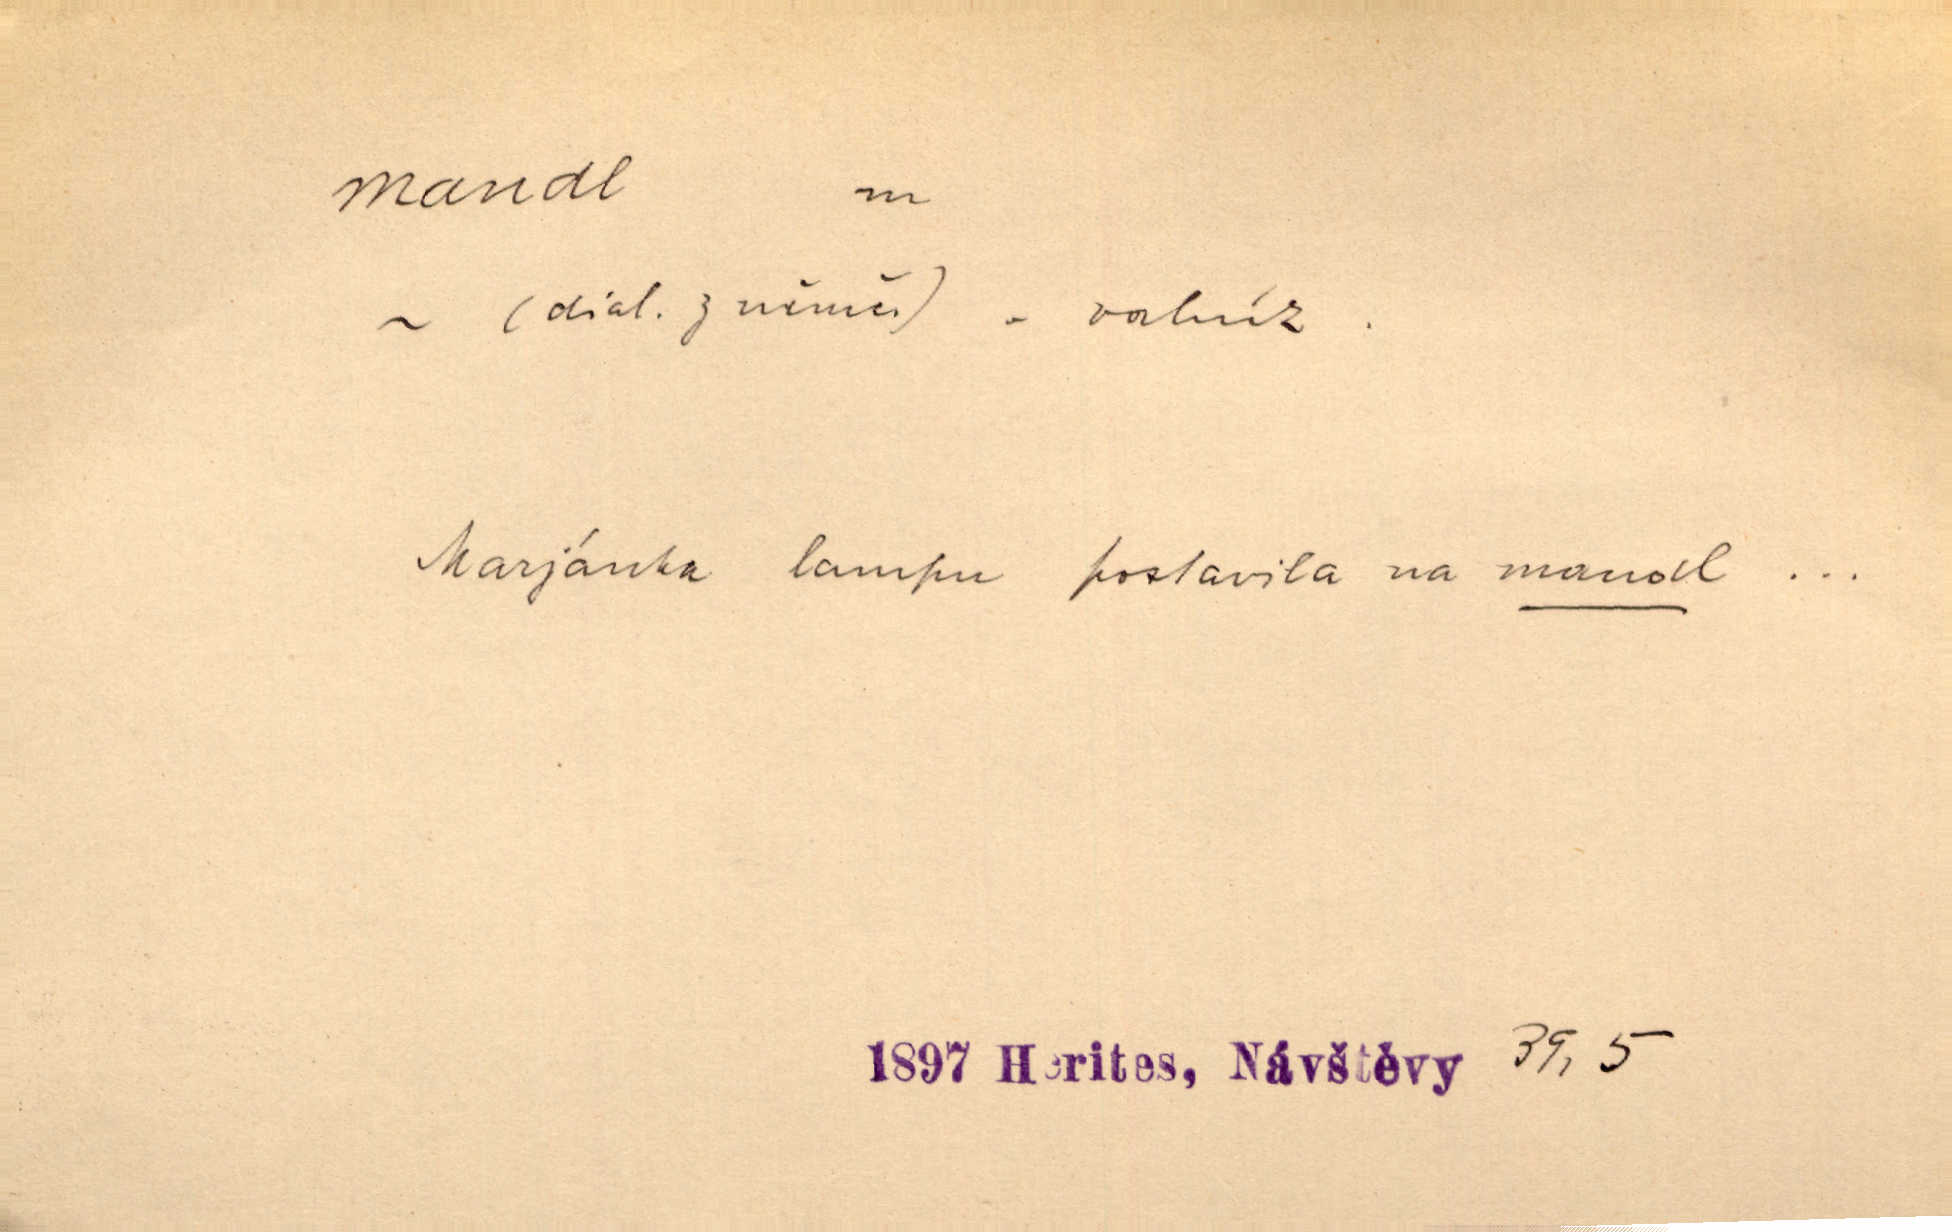 mandl m
~ (dial. z němč.) - valníz.
Marjánka lampu postavila na mandl ...
1897 Herites, Návštěvy 39, 5